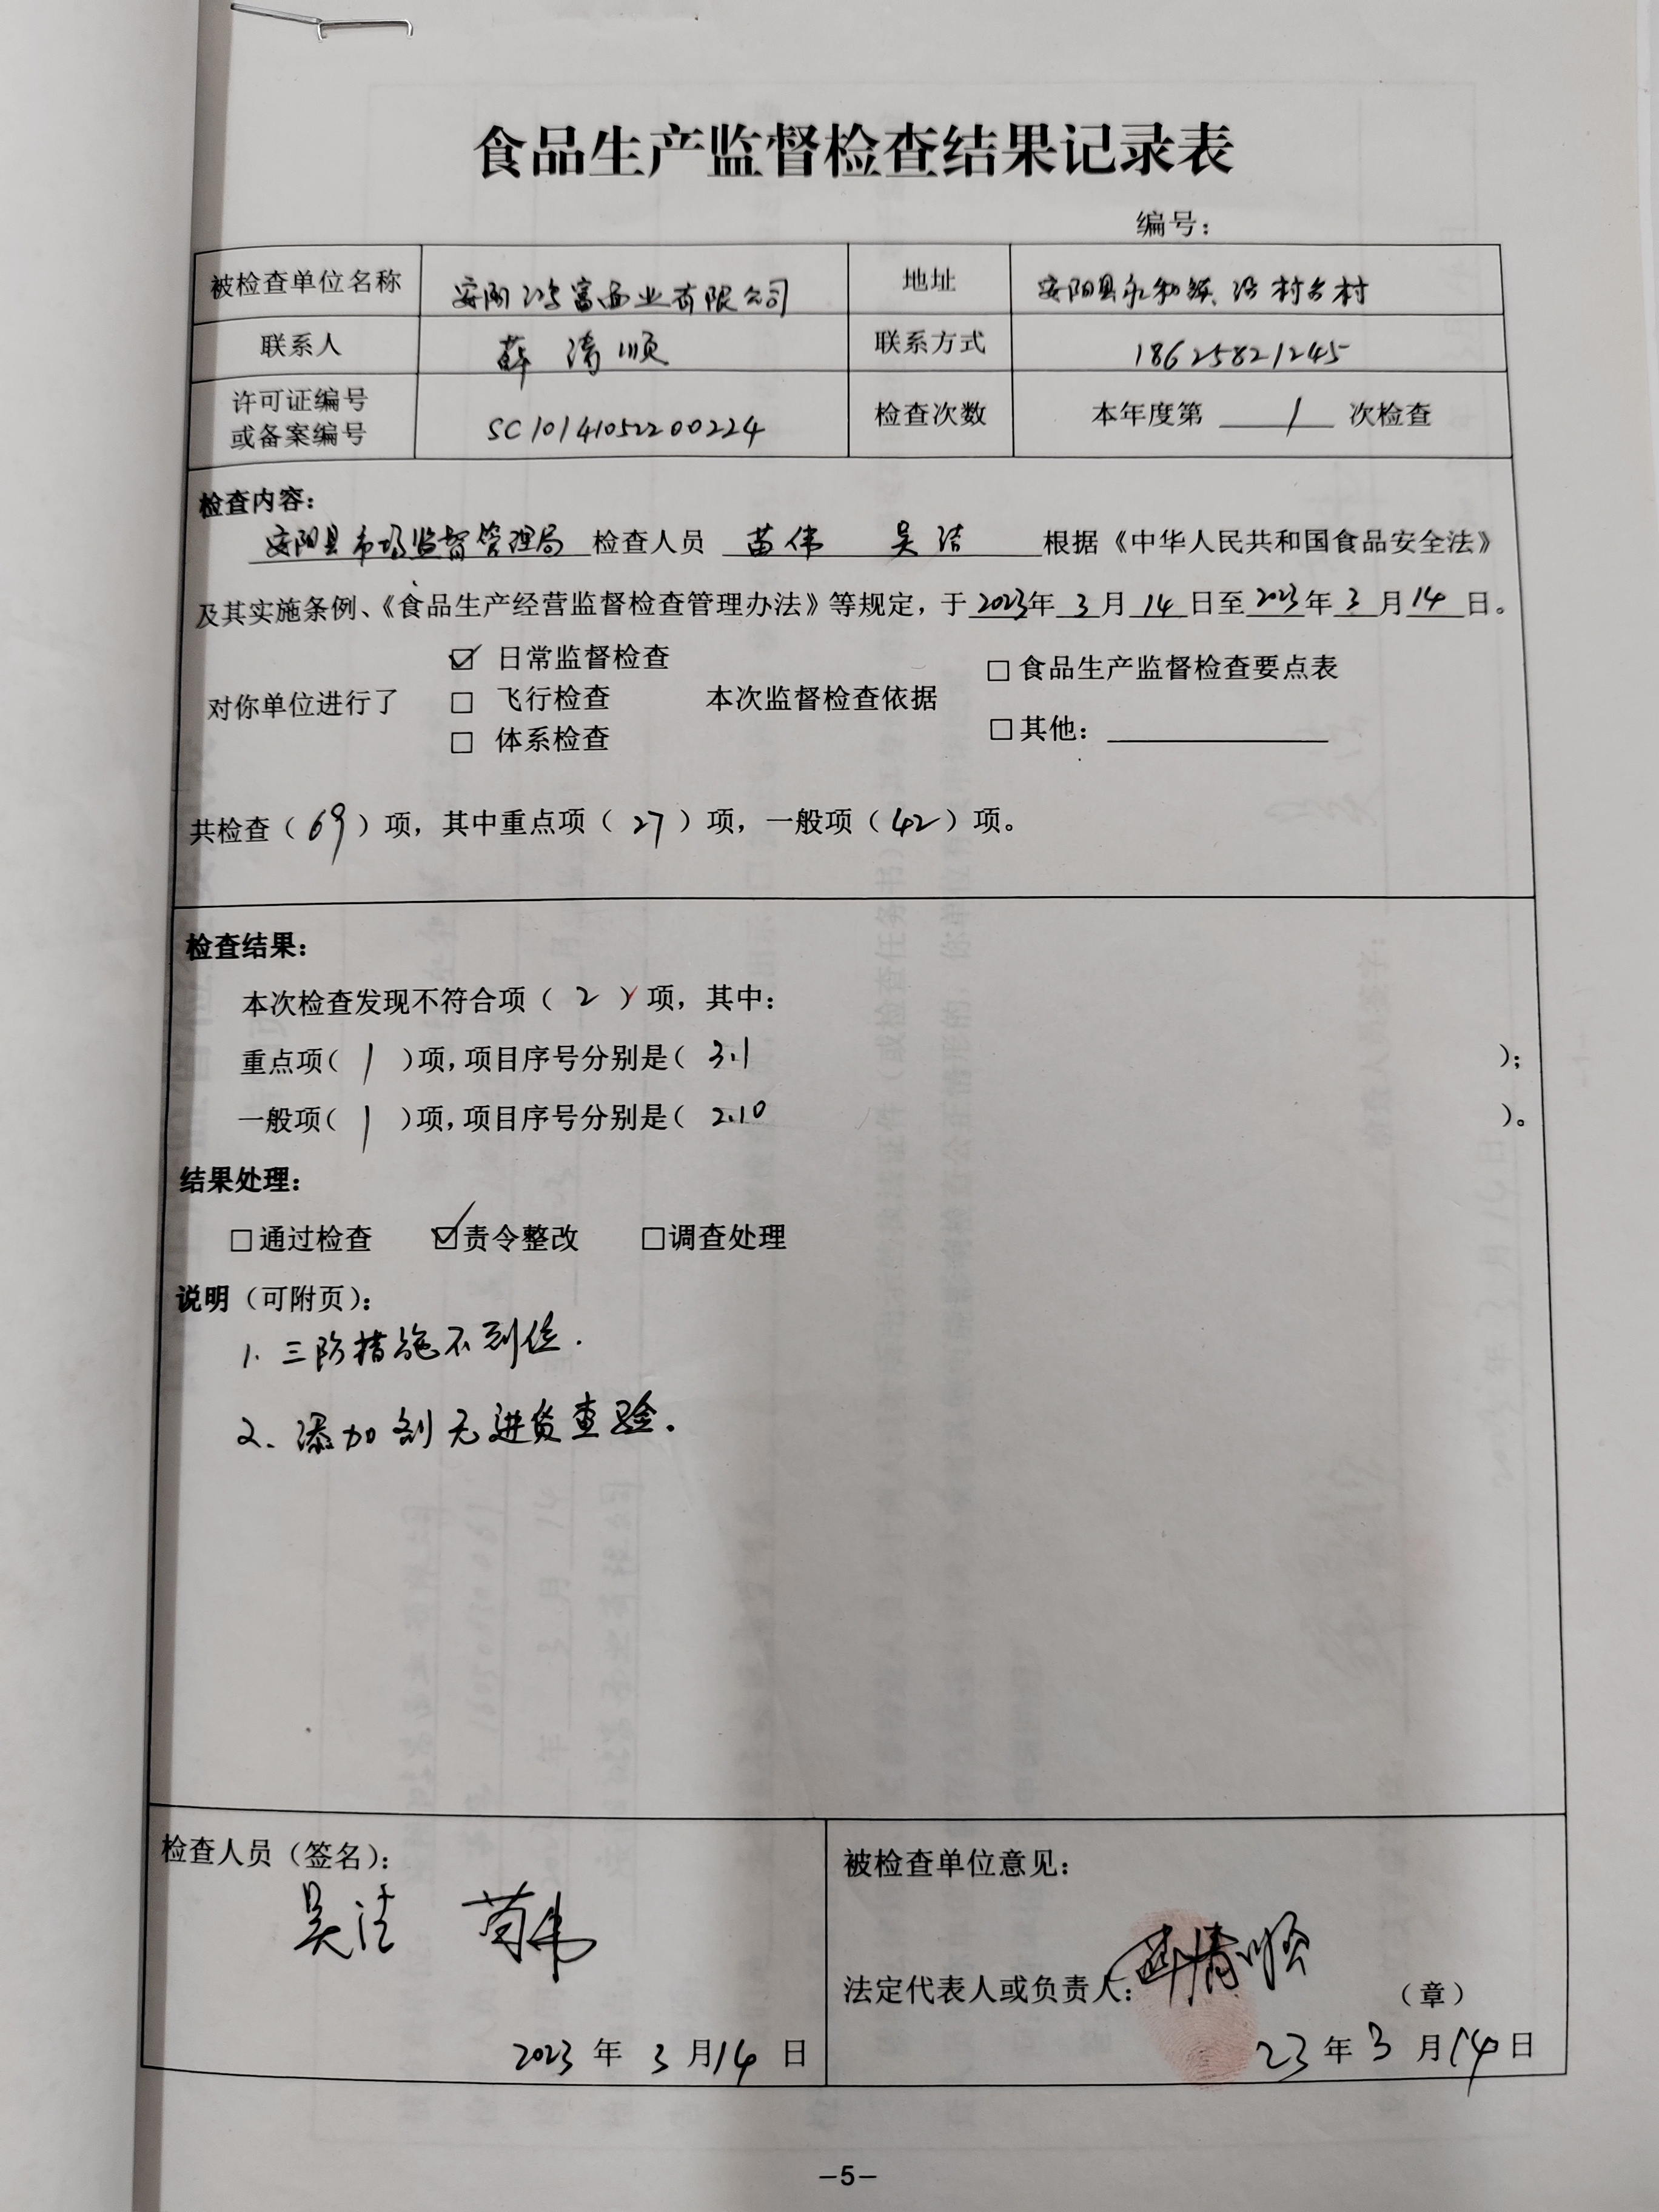 食品生产监督检查结果记录表
编号：
被检查单位名称 安阳鸿富面业有限公司 地址 安阳县永和镇 村
联系人 薛清顺 联系方式 18625821245
许可证编号
或备案编号 SC10141052200224 检查次数 本年度第 1 次检查
检查内容：
安阳县市场监督管理局 检查人员 苗伟 吴洁 根据《中华人民共和国食品安全法》
及其实施条例、《食品生产经营监督检查管理办法》等规定，于2023年3月14日至2023年3月14日。
☑ 日常监督检查
□ 食品生产监督检查要点表
对你单位进行了 □ 飞行检查 本次监督检查依据
□ 其他：
□ 体系检查
共检查（69）项，其中重点项（27）项，一般项（42）项。
检查结果：
本次检查发现不符合项（2）项，其中：
重点项（1）项，项目序号分别是（3.1）；
一般项（1）项，项目序号分别是（2.10）。
结果处理：
□通过检查 ☑责令整改 □调查处理
说明（可附页）：
1. 三防措施不到位.
2. 添加剂无进货查验.
检查人员（签名）：
吴洁 苗伟
2023年3月14日
被检查单位意见：
法定代表人或负责人：薛清顺 （章）
23年3月14日
—5—